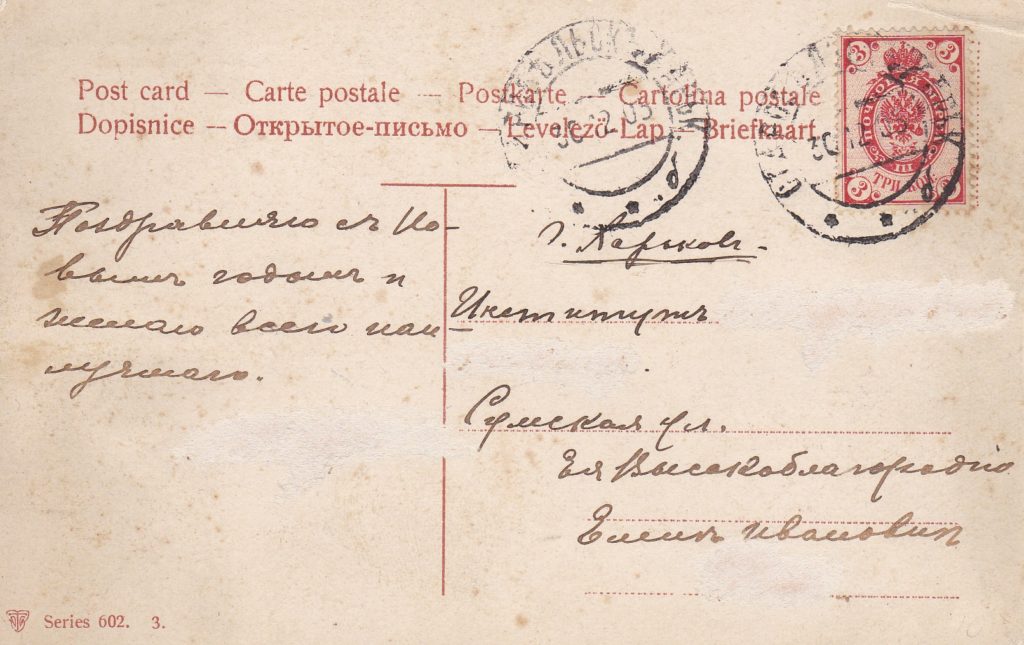 Post card — Carte postale — Postkarte — Cartolina postale
Dopisnice — Открытое-письмо — Levelező Lap — Briefkaart
30 12 05
30 12 05
3 3
ПОЧТОВ
III
ТРИ КОП
3 3
Поздравляю съ Но-
вымъ годомъ и
желаю всего наи-
лучшаго.
г. Харьковъ.
Институтъ
Сумская ул.
Ея Высокоблагородію
Еленѣ Ивановнѣ
Series 602. 3.